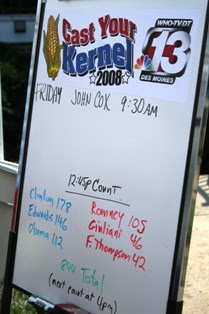 Cast Your
Kernel
2008
WHO-TV DT
13
DES MOINES
FRIDAY JOHN COX 9:30AM
12:45p COUNT
Clinton 178
Edwards 146
Obama 112
Romney 105
Giuliani 46
F. Thompson 42
899 Total
(next count at 4pm)